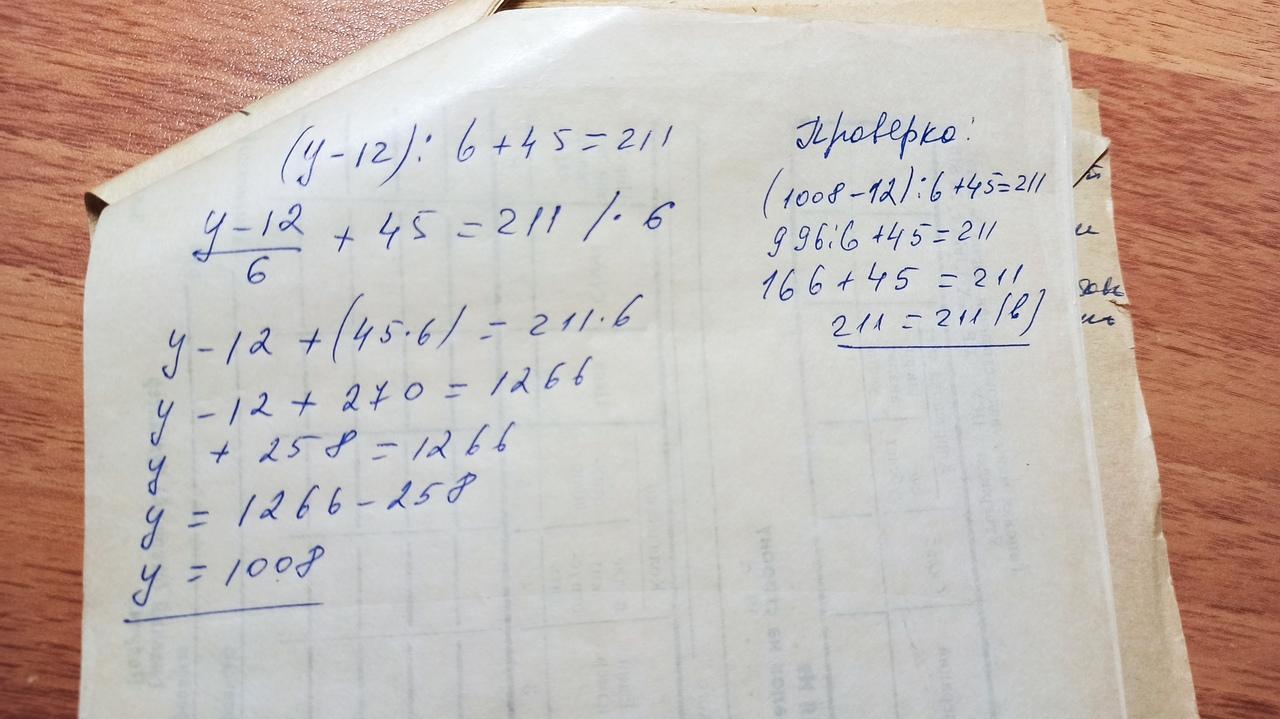 (y-12): 6+45=211
y-12/6 + 45 = 211 /· 6
y-12 +(45·6) = 211·6
y -12 + 270 = 1266
y + 258 = 1266
y = 1266-258
y = 1008
Проверка:
(1008-12):6+45=211
996:6+45=211
166+45 = 211
211 = 211 (в)